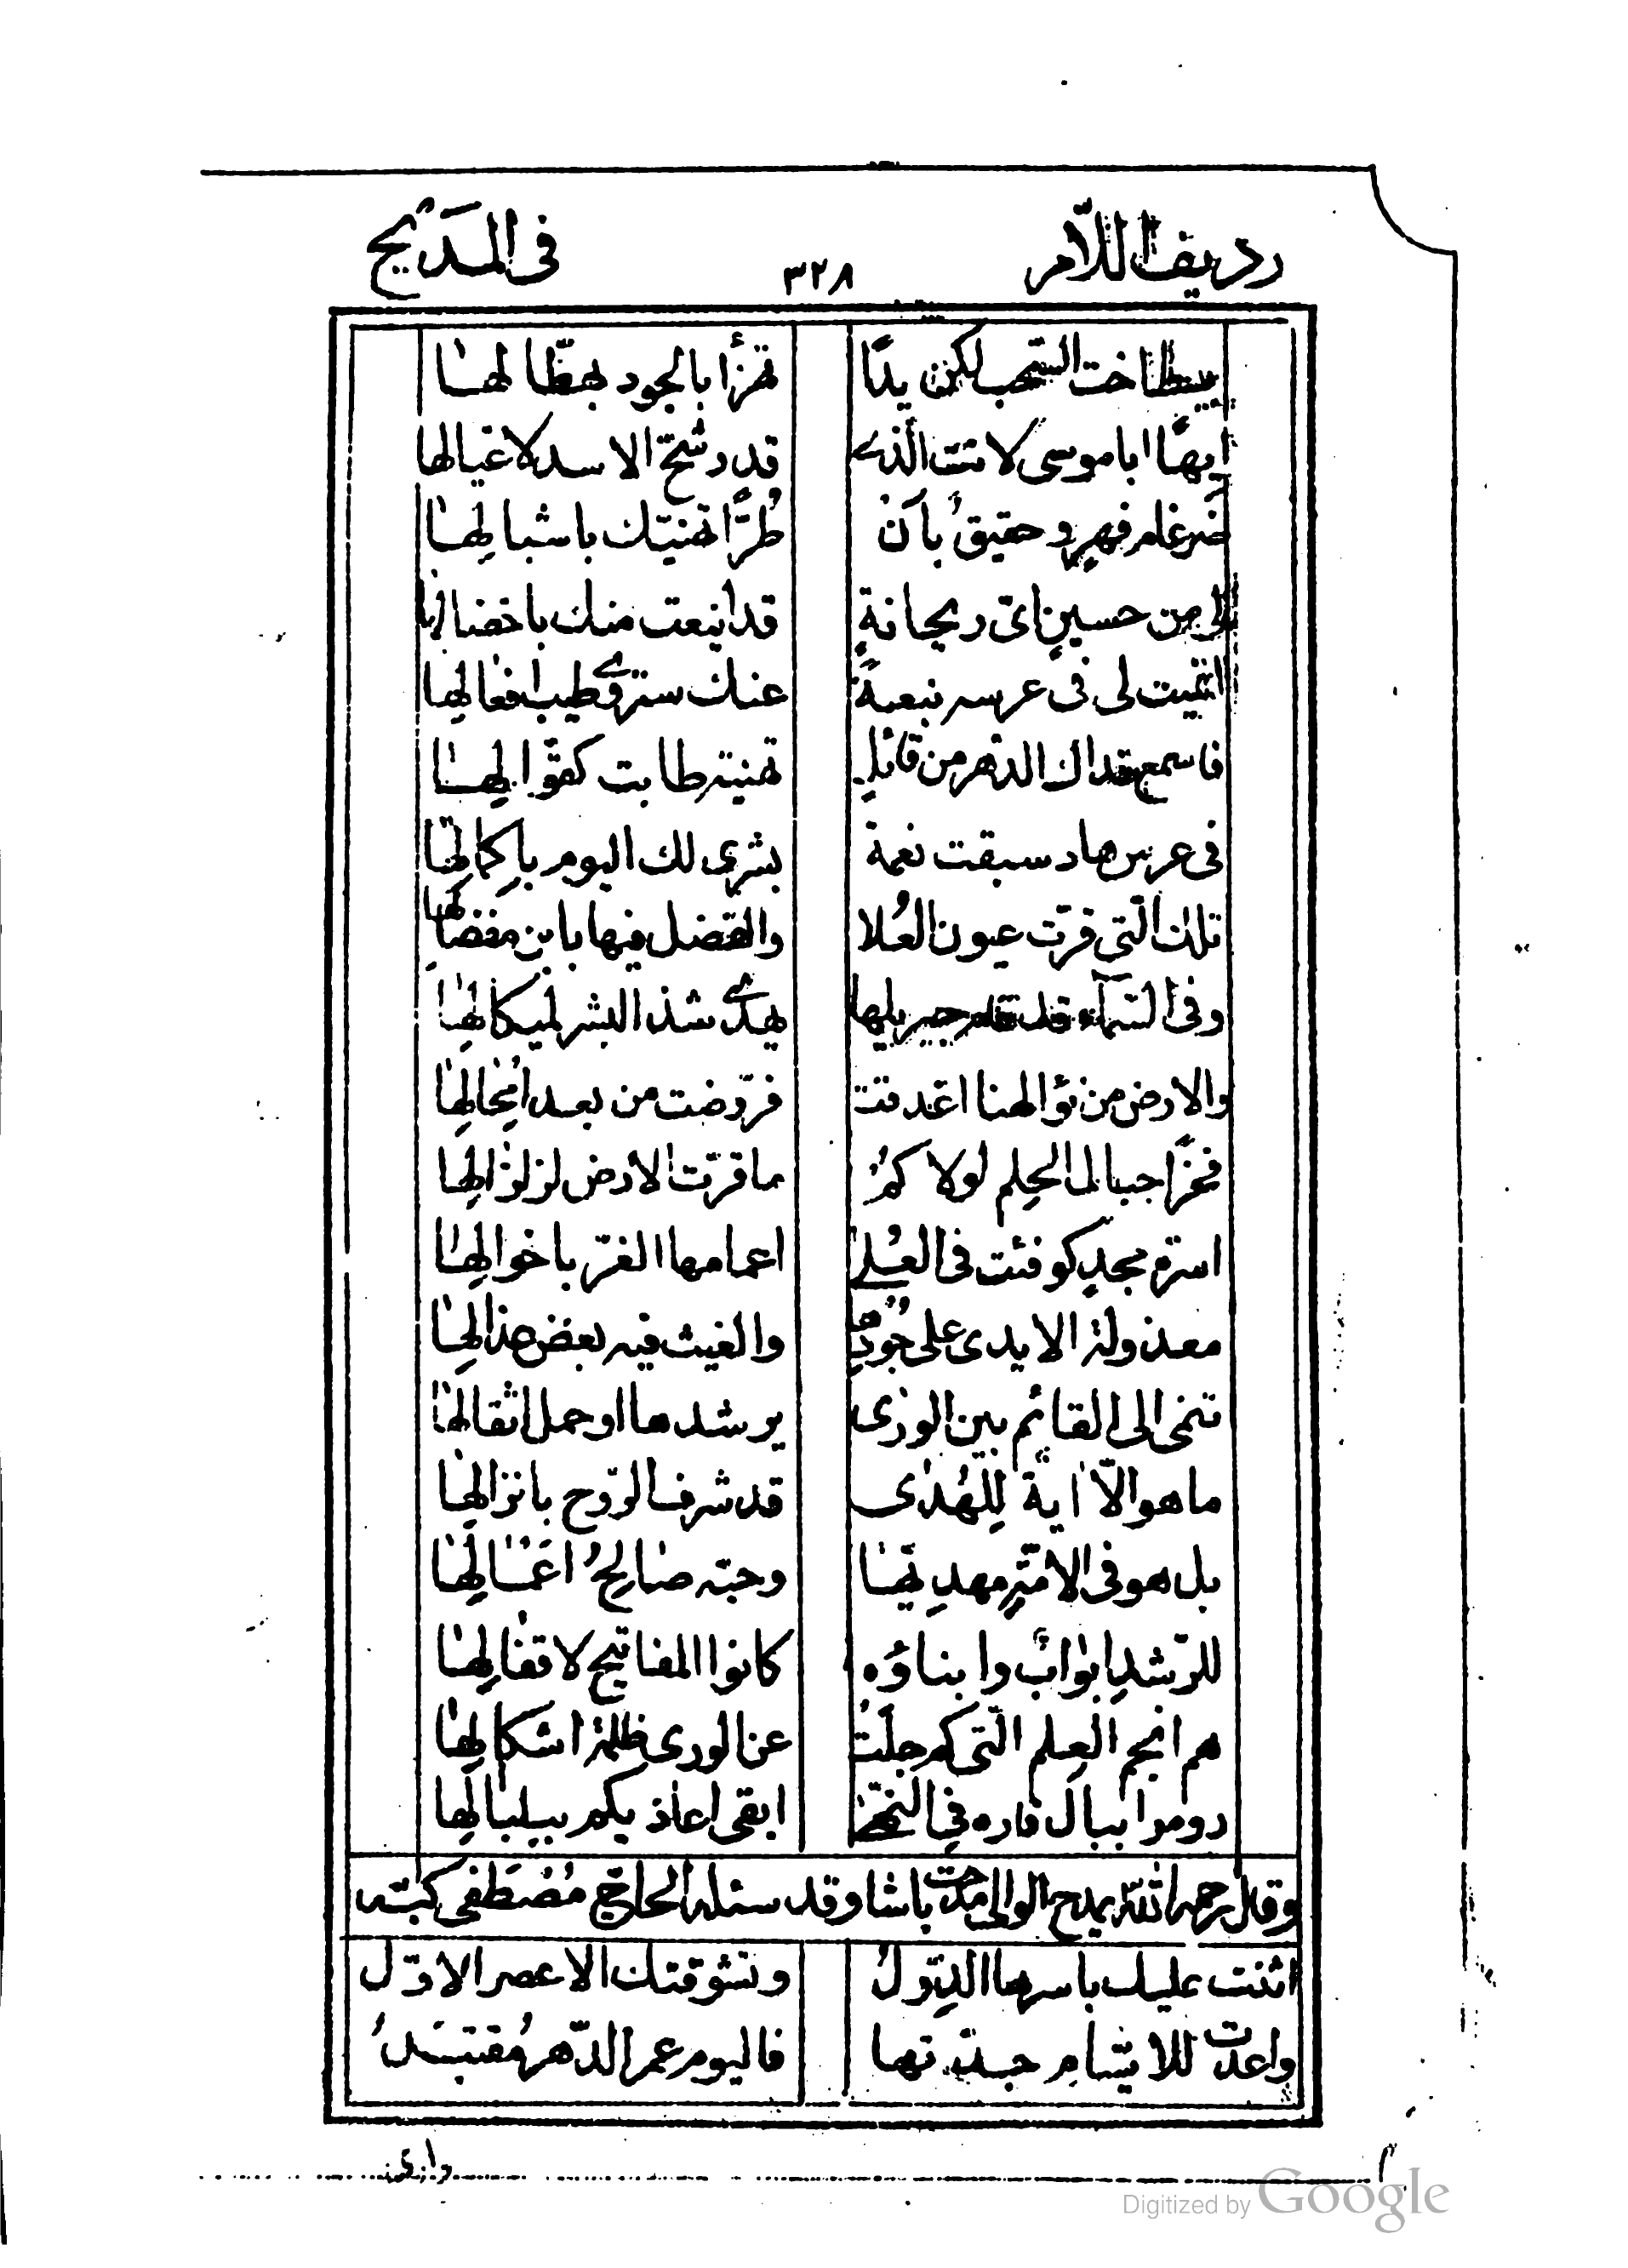 رديف اللام ٣٢٨ في المديح
اخت السحب لكن يدًا تهزأ بالجود بهطّالها
ايهًا اباموسى لانت الذي قد رشّح الاسد لاغيالها
ضرغام فهرٍ وحقيقٌ بأن طُرًّا تهنيّك باشبالها
من حسين اي ريحانةٍ قد انبعت منك باخضالها
لي في عرسه نبعةً عنك ستروي طيب افعالها
فاسمع فداك الدهر من قائلٍ تهنيةً طابت كقوّالها
في عرس هاد سبقت نعمة بشرى لك اليوم باكمالها
تلك الّتي قرّت عيون العُلا والفضل فيها بابن مفضالها
وفي السّمآء قد قام جبريلها يهدي شذ البشر لميكالها
والارض من نوّ الهنا اغدقت فروّضت من بعد امحالها
فخرًا جبالَ الحلم لولاكمُ ما قرّت الارض لزلزالها
اسرة مجدٍ كوفئت في العُلى اعمامها الغرّ باخوالها
معذولة الايدى على جُودها والغيث فيه بعض عذالها
تنمى الى القائم بين الورى يرشدها او حمل اثقالها
ما هو الّا اٰية للهُدٰى قد شرف الرّوح بانزالها
بل هو في الامّة مهديّها وحبّه صالحُ اعمالها
للرّشد ابوابٌ وابناؤه كانوا المفاتيح لاقفالها
هم انجم العلم الّتي كم جلَت عن الورى ظلمة اشكالها
دوموا ببال فاره في ابقى اعاذ يكم ببلبالها
وقال رحمه اللّٰه يمدح الوالى مدحت باشا وقد سئله الحاج مُصْطَفى كبّه
اثنت عليك باسرها الدِوَلُ وتشوقتك الاعصر الاوّل
واعدت للايّام جدتها فاليوم عمر الدّهر مُقتبَلُ
Digitized by Google